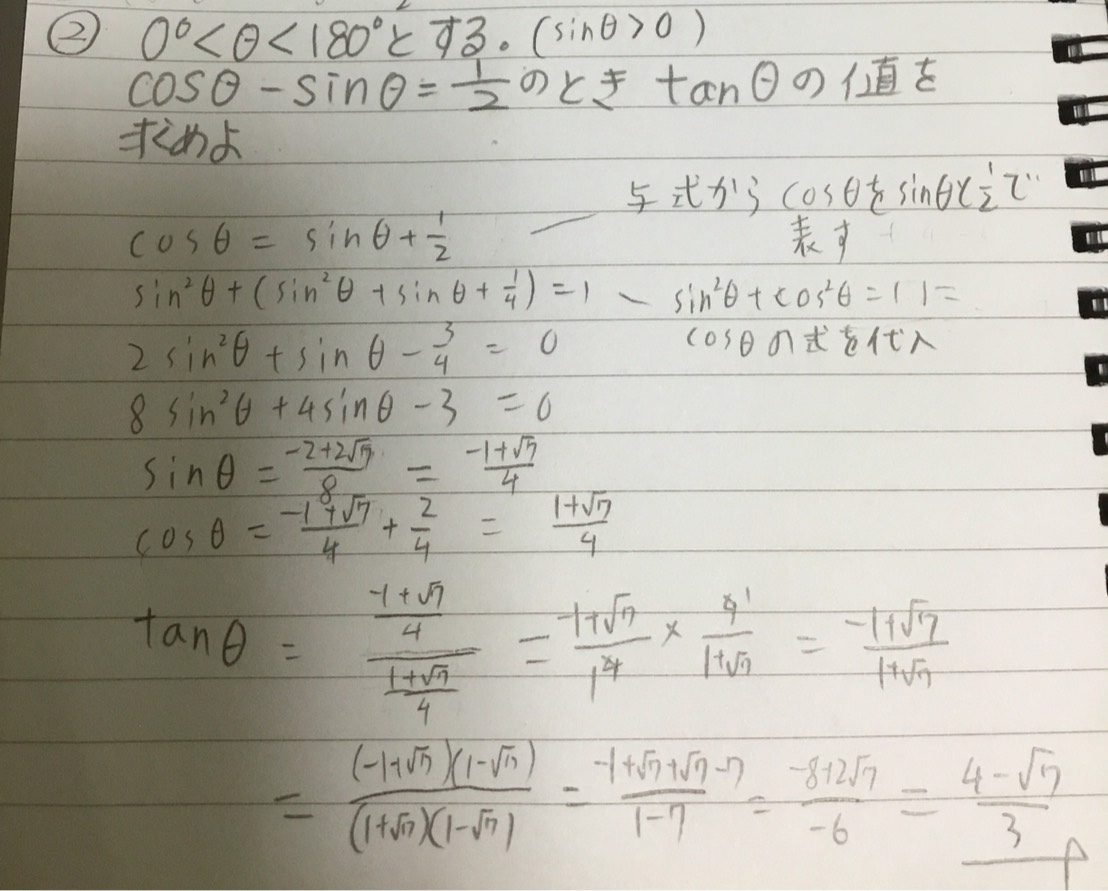 ② 0°<θ<180°とする。(sinθ>0)
cosθ-sinθ=1/2のとき tanθの値を
求めよ
与式からcosθをsinθと1/2で
表す
cosθ = sinθ+1/2
sin²θ+(sin²θ+sinθ+1/4)=1 ー sin²θ+cos²θ=1に
cosθの式を代入
2sin²θ+sinθ-3/4 = 0
8sin²θ+4sinθ-3 =0
sinθ = (-2+2√7)/8 = (-1+√7)/4
cosθ = (-1+√7)/4 + 2/4 = (1+√7)/4
tanθ = ((-1+√7)/4)/((1+√7)/4) = (-1+√7)/4 × 4/(1+√7) = (-1+√7)/(1+√7)
= ((-1+√7)(1-√7))/((1+√7)(1-√7)) = (-1+√7+√7-7)/(1-7) = (-8+2√7)/-6 = (4-√7)/3